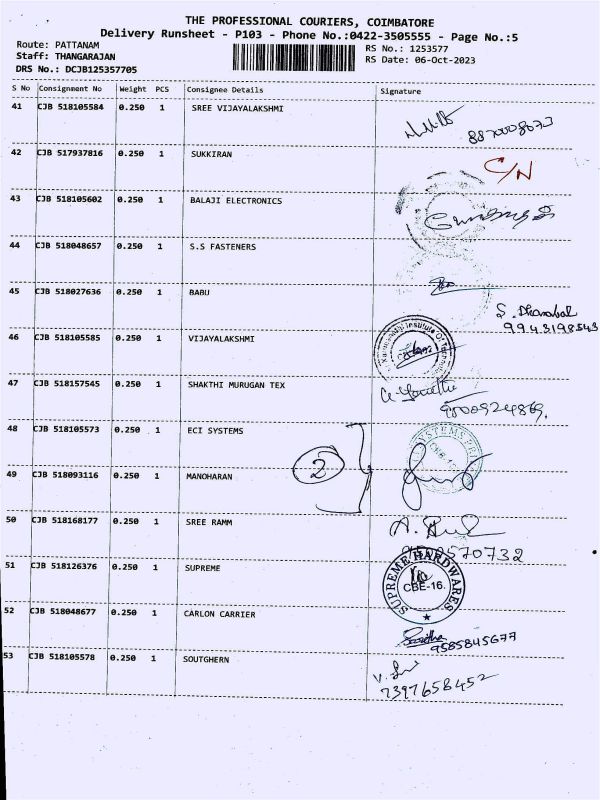 THE PROFESSIONAL COURIERS, COIMBATORE
Delivery Runsheet - P103 - Phone No.:0422-3505555 - Page No.:5
Route: PATTANAM
RS No.: 1253577
Staff: THANGARAJAN
RS Date: 06-Oct-2023
DRS No.: DCJB125357705
S No Consignment No Weight PCS Consignee Details Signature
41 CJB 518105584 0.250 1 SREE VIJAYALAKSHMI
42 CJB 517937816 0.250 1 SUKKIRAN C/N
43 CJB 518105602 0.250 1 BALAJI ELECTRONICS
44 CJB 518048657 0.250 1 S.S FASTENERS
45 CJB 518027636 0.250 1 BABU
S. Dhanabal
9943198543
46 CJB 518105585 0.250 1 VIJAYALAKSHMI
47 CJB 518157545 0.250 1 SHAKTHI MURUGAN TEX
9500924869.
48 CJB 518105573 0.250 1 ECI SYSTEMS
2
49 CJB 518093116 0.250 1 MANOHARAN
50 CJB 518168177 0.250 1 SREE RAMM
51 CJB 518126376 0.250 1 SUPREME
SUPREME HARDWARES
CBE-16.
52 CJB 518048677 0.250 1 CARLON CARRIER
9585845677
53 CJB 518105578 0.250 1 SOUTGHERN
7397658452